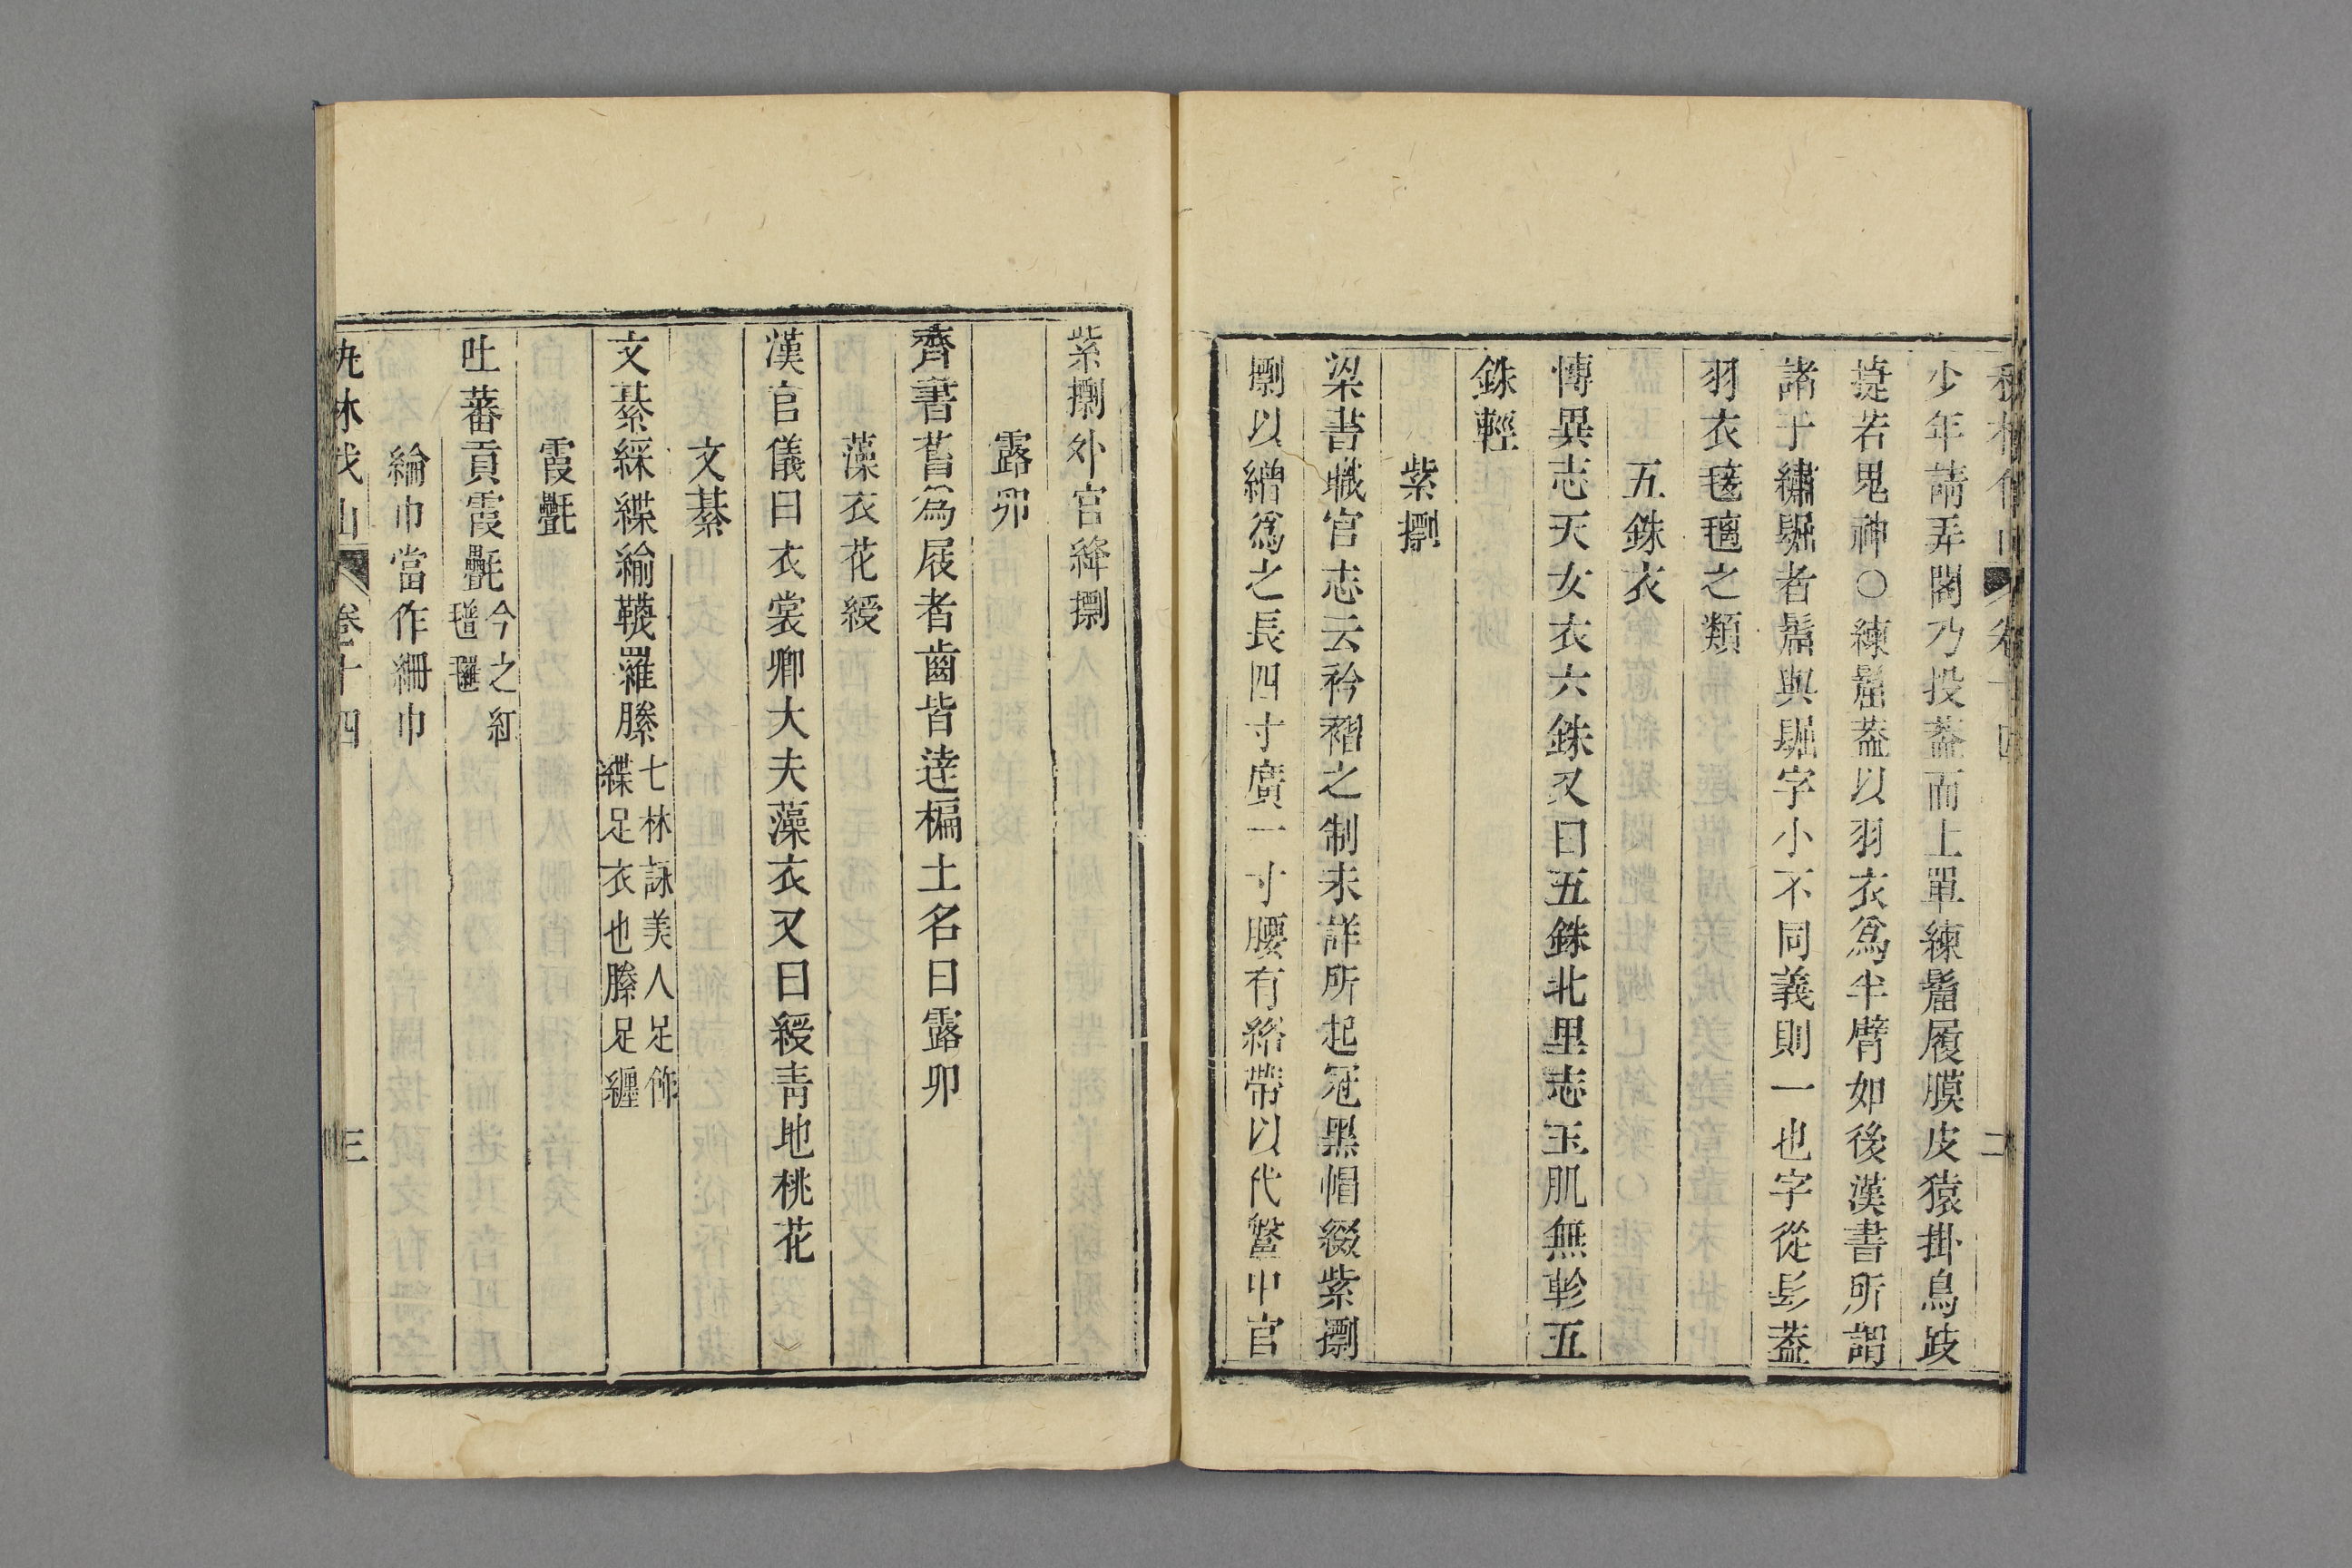 少年請弄閣乃投蓋而上單練䯱履膜皮猿掛鳥跂
㨗若鬼神○練䯱蓋以羽衣爲半臂如後漢書所謂
諸于繡䘿者䯱與䘿字小不同義則一也字從髟蓋
羽衣毰毸之類
五銖衣
博異志天女衣六銖又曰五銖北里志玉肌無軫五
銖輕
紫摽
梁書職官志云衿褶之制未詳所起冠黑帽綴紫摽
摽以繒爲之長四寸廣一寸腰有絡帶以代鞶中官
紫摽外官絳摽
露卯
齊書舊爲屐者齒皆達楄上名曰露卯
藻衣花綬
漢官儀曰衣裳卿大夫藻衣又曰綬青地桃花
文綦
文綦綵緤綸韈羅縢七林詠美人足飾
緤足衣也縢足纏
霞氎
吐蕃貢霞氎今之紅
氆氌
綸巾當作䌾巾
九林伐山 卷十四 三